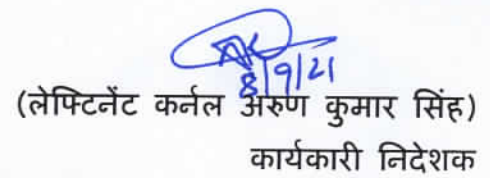 8/9/21
(लेफ्टिनेंट कर्नल अरुण कुमार सिंह)
कार्यकारी निदेशक